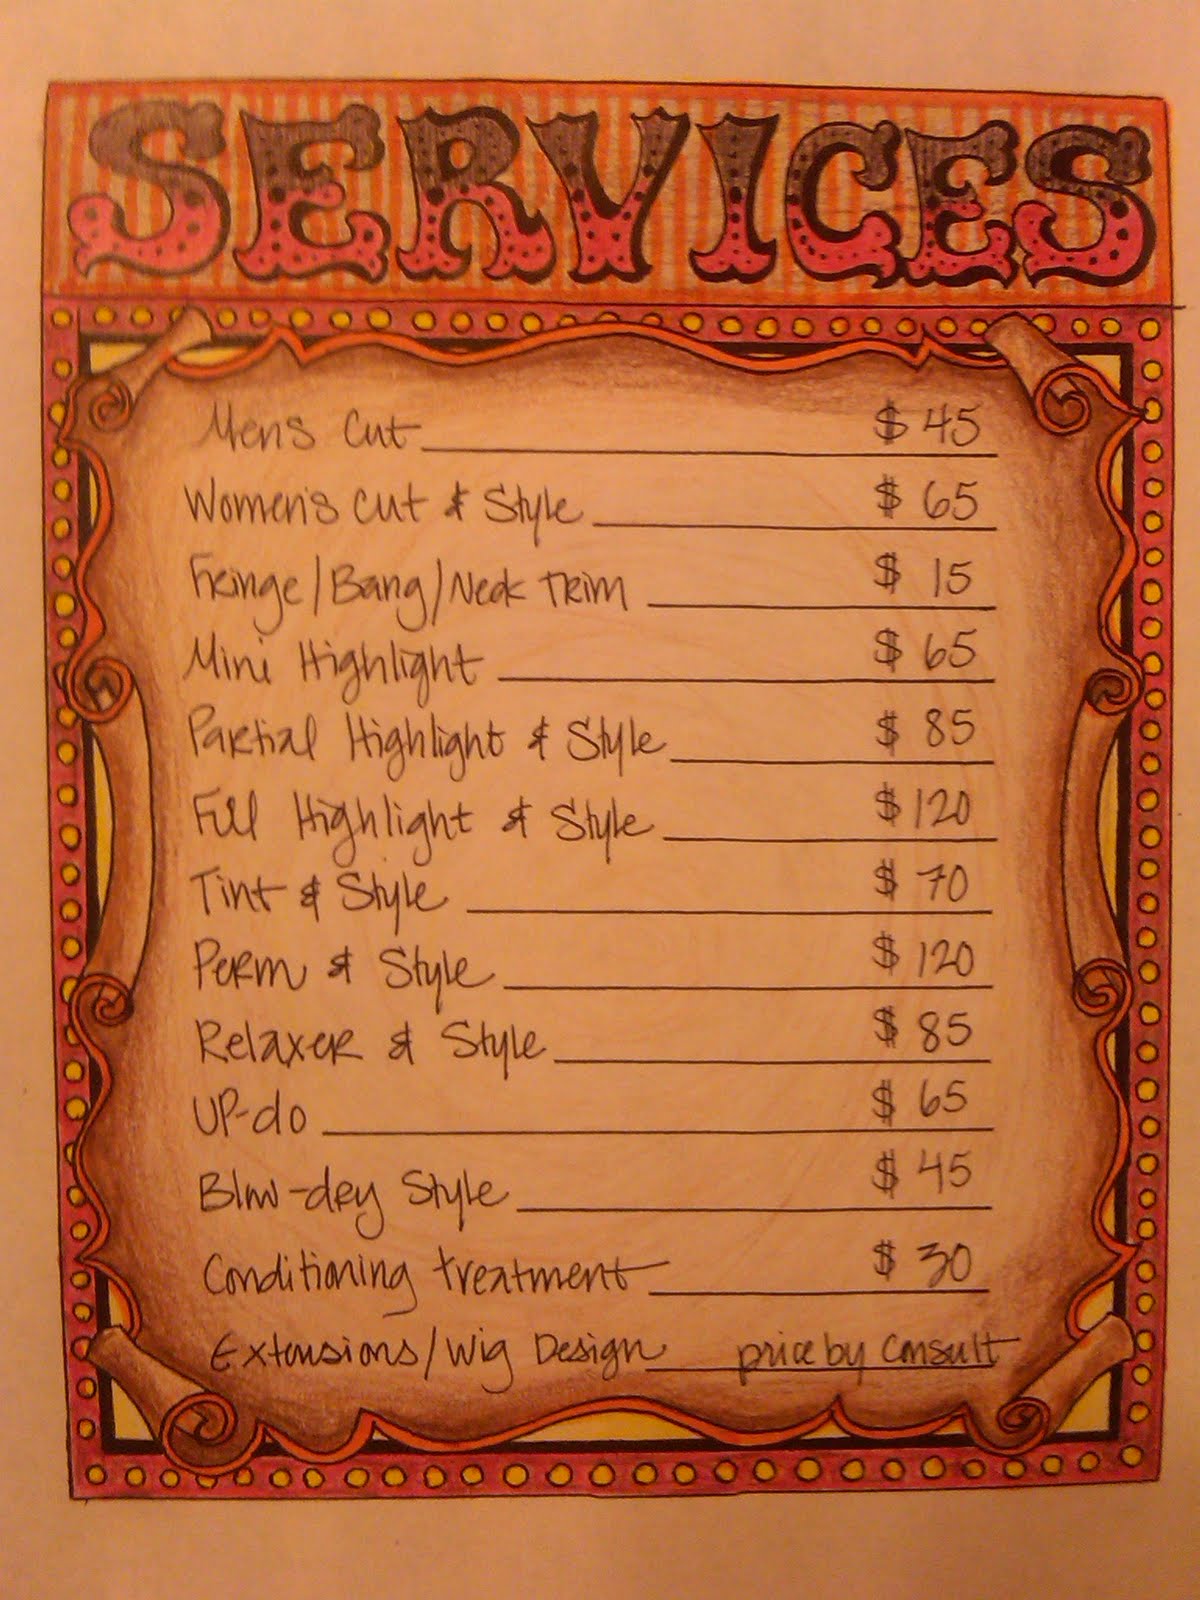 SERVICES
Men's Cut $ 45
Women's Cut & Style $ 65
Fringe/Bang/Neck Trim $ 15
Mini Highlight $ 65
Partial Highlight & Style $ 85
Full Highlight & Style $ 120
Tint & Style $ 70
Perm & Style $ 120
Relaxer & Style $ 85
UP-do $ 65
Blow-dry Style $ 45
Conditioning treatment $ 30
Extensions/Wig Design price by Consult